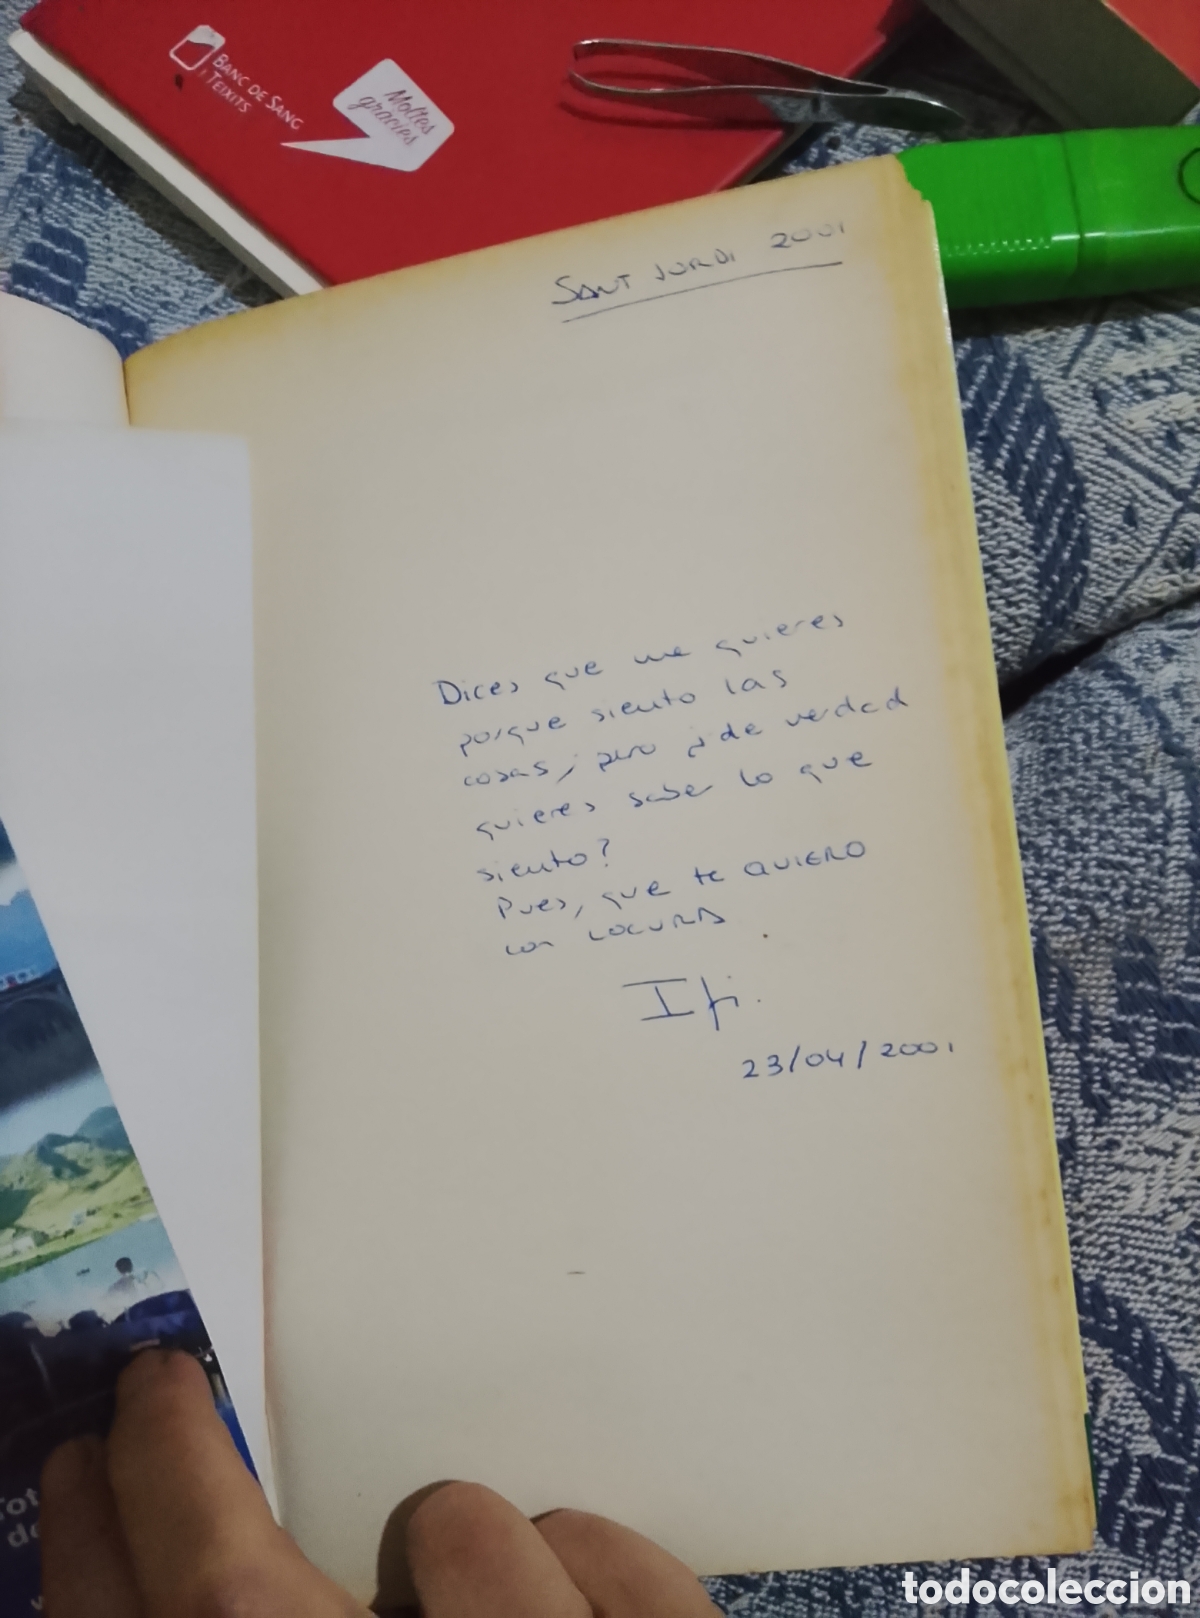 BANC DE SANG
I TEIXITS
Moltes
gràcies
SANT JORDI 2001
Dices que me quieres
porque siento las
cosas, pero ¿de verdad
quieres saber lo que
siento?
Pues, que te QUIERO
con LOCURA.
Ifi.
23/04/2001
todocoleccion